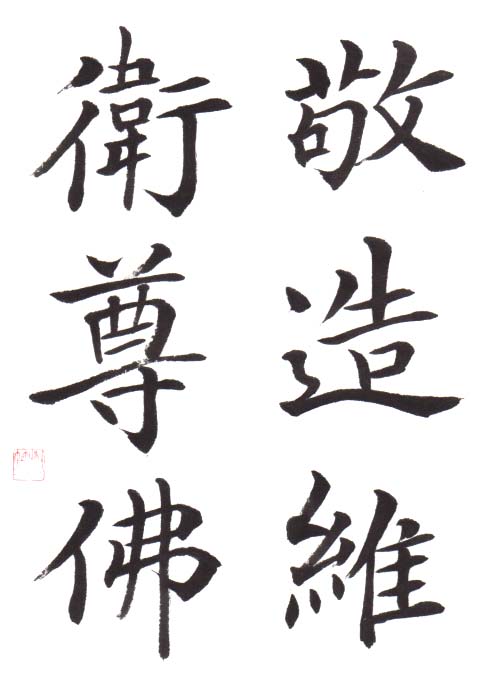 敬造維
衛尊佛